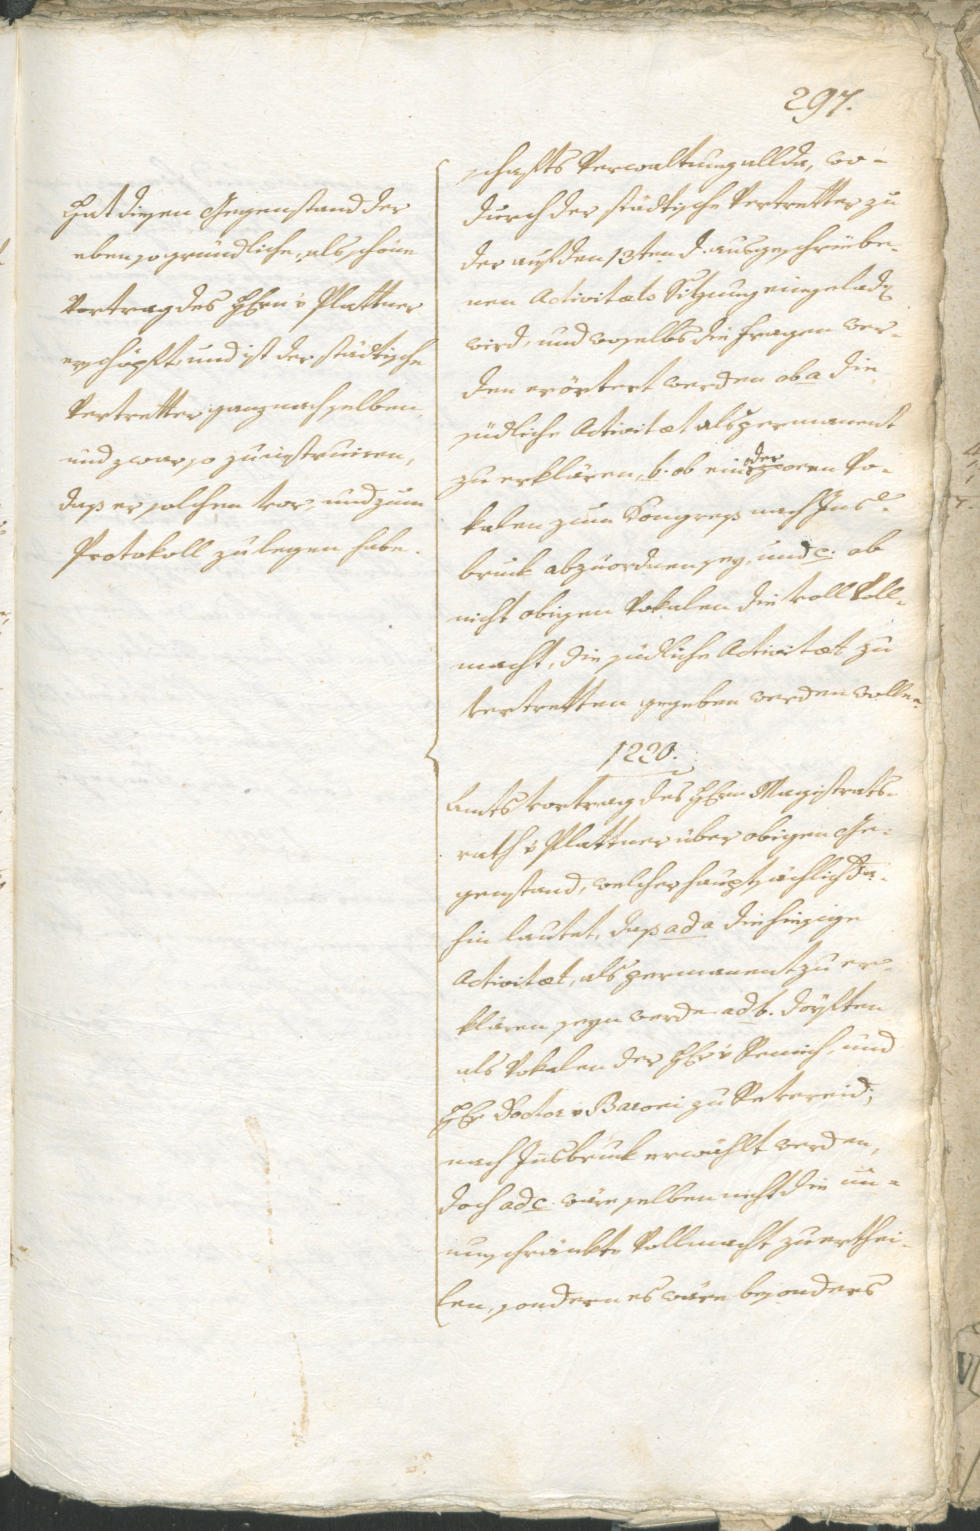 297.
Hat diesen Gegenstand der
eben so gründliche, als schöne
Vortrag des Herrn v Plattner
erschöpft, und ist der städtische
Vertretter ganz nach selben,
und zwar so zu instruiren,
daß er solchen vor, und zum
Protokoll zu legen habe.
schafts Verwaltung allda, wo-
durch der städtische Vertretter zu
der auf den 13ten d. ausgeschriebe-
nen Activitæts Sitzung eingelade
wird, und woselbs die Fragen wer-
den erörtert werden ob a die
südliche Activitæt als permanent
zu erklären, b. ob ein oder Vo-
kalen zum Kongreß nach Inns-
bruk abzuordnen sey, und c. ob
nicht obigen Vokalen die voll Voll-
macht, die südliche Activitæt zu
vertretten gegeben werden wolle.
1220.
Amts Vortrag des Herrn Magistrats-
rath v Plattner über obigen Ge-
genstand, welcher hauptsächlich da-
hin lautet, daß ad a die hiesige
Activitæt, als permanent zu er-
klären seyn werde ad b. dörften
als Vokalen der Herr v und
Herr Doctor v Baroni zu
nach Innsbruk erwählt werden,
doch ad c. wäre selben nicht die un-
umschränkte Vollmacht zu erthei-
len, sondern es wäre besonders